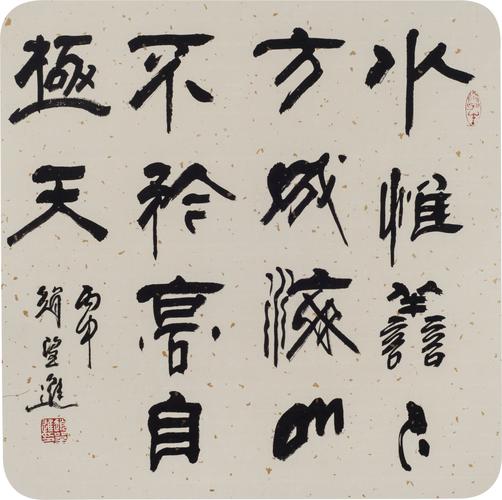 水惟譱下
方成海山
不矜高自
極天
丙申
趙望進